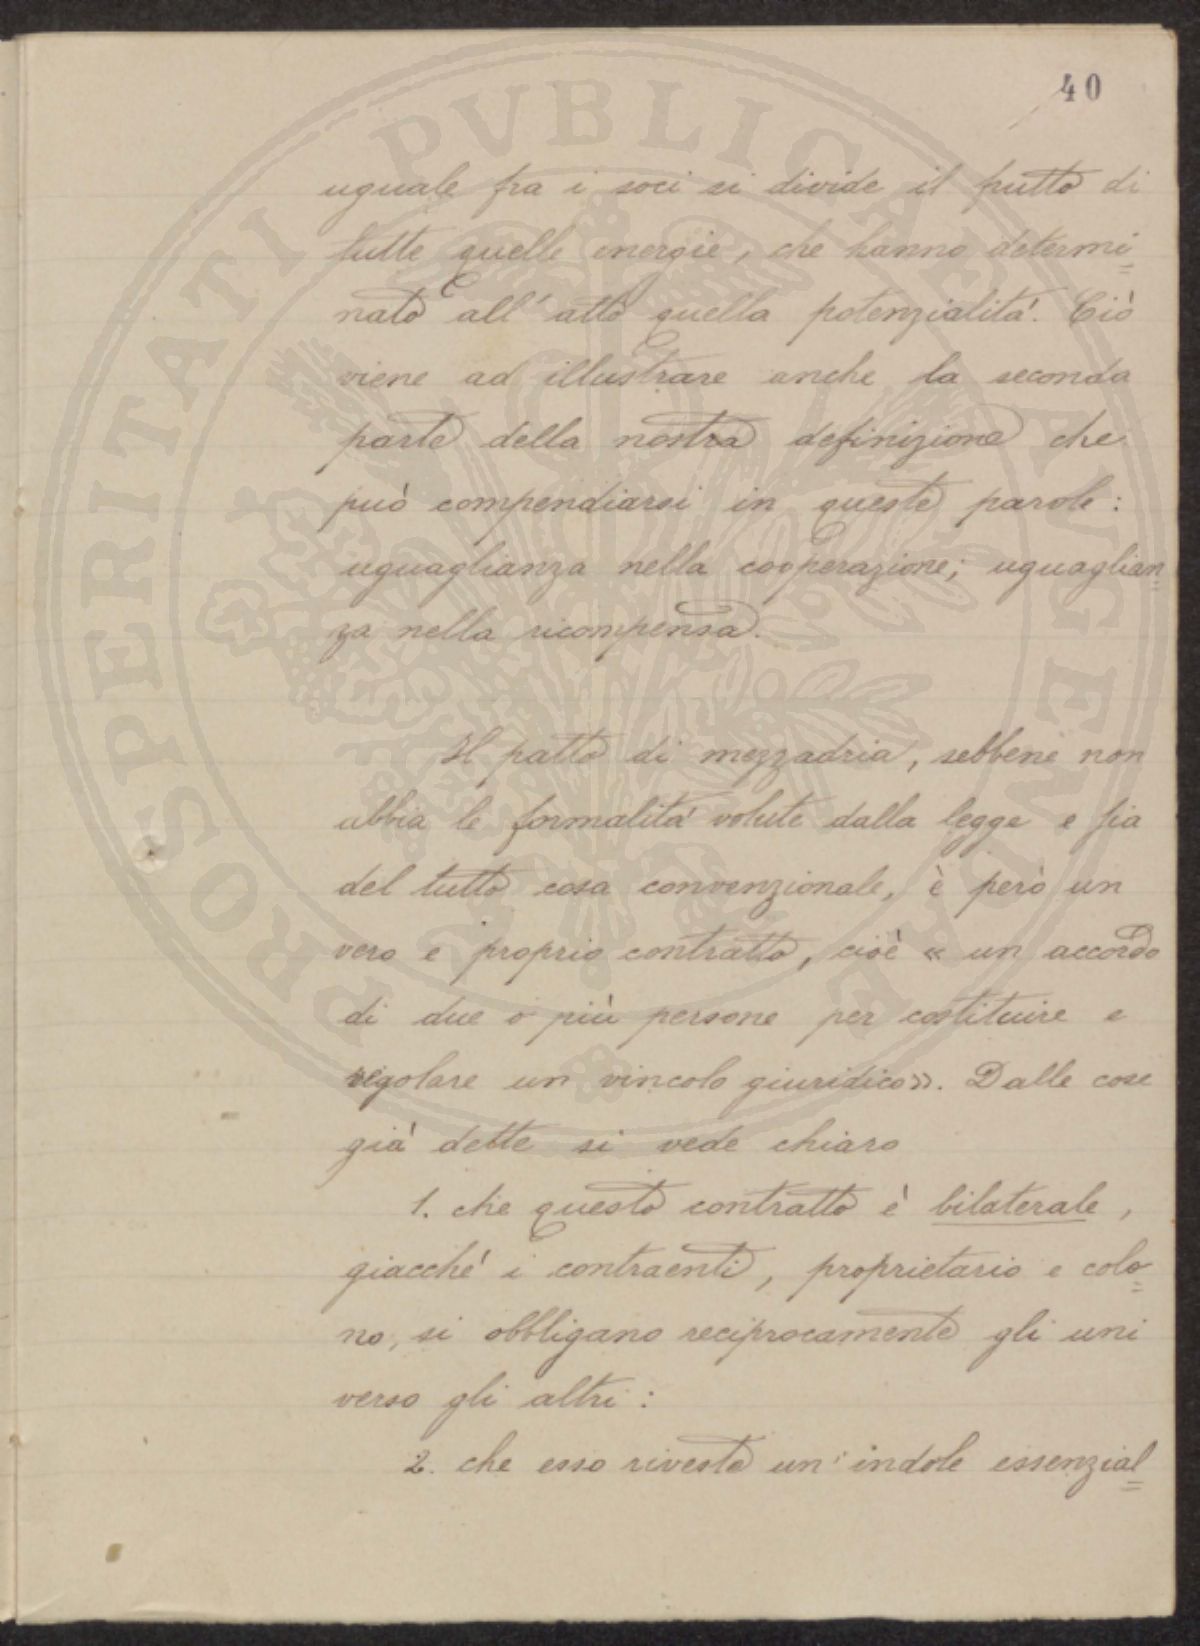 40
uguale fra i soci si divide il frutto di
tutte quelle energie, che hanno determi=
nato all'atto quella potenzialità. Ciò
viene ad illustrare anche la seconda
parte della nostra definizione che
può compendiarsi in queste parole:
uguaglianza nella cooperazione; uguaglian=
za nella ricompensa.
Il patto di mezzadria, sebbene non
abbia le formalità volute dalla legge e sia
del tutto cosa convenzionale, è però un
vero e proprio contratto, cioè « un accordo
di due o più persone per costituire e
regolare un vincolo giuridico». Dalle cose
già dette si vede chiaro
1. che questo contratto è bilaterale,
giacché i contraenti, proprietario e colo=
no, si obbligano reciprocamente gli uni
verso gli altri:
2. che esso riveste un'indole essenzial=
PROSPERITATI PVBLICAE AVGENDAE